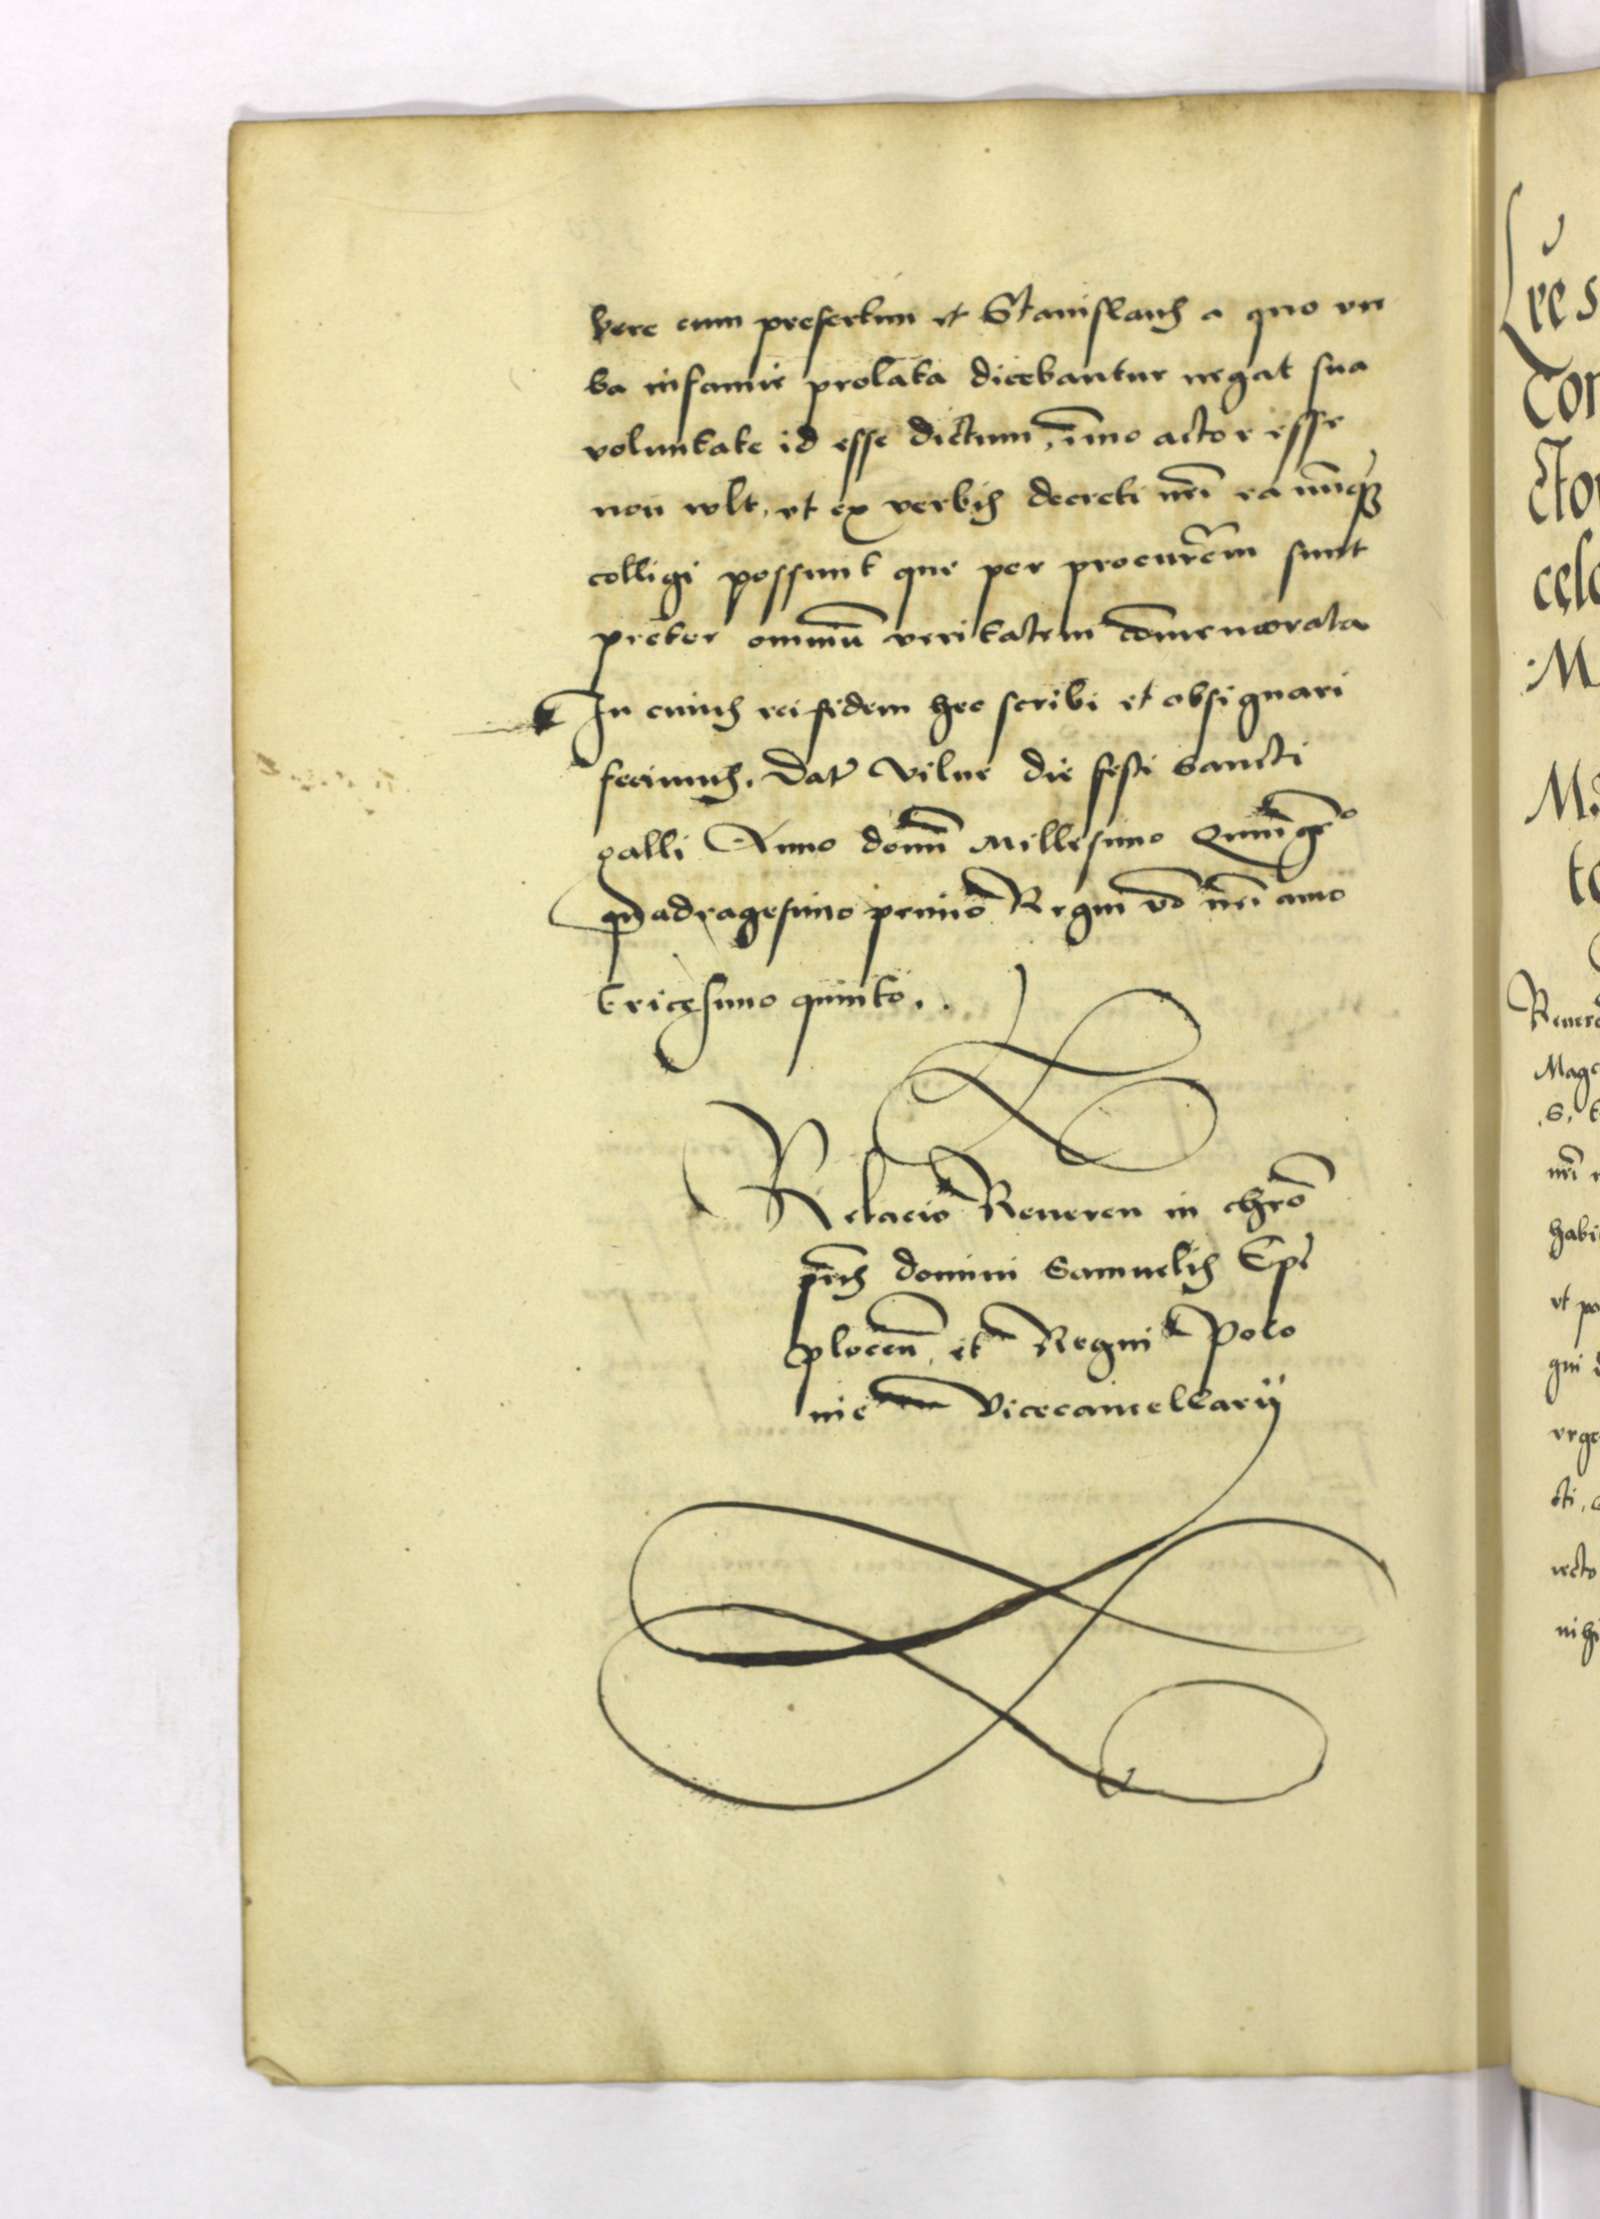 bere cum presertim et Stanislaus a quo ver
ba infamie prolata dicebantur negat sua
voluntate id esse dictum, imo actor esse
non wlt, et ex verbis decreti nri ea nunqz
colligi possunt que per procurem sunt
preter omnium veritatem comemorata
In cuius rei fidem hec scribi et obsignari
fecimus. Dat Vilne die festi Sancti
galli Anno domi Millesimo Quinge͞o
quadragesimo primo Regni vo nri anno
tricesimo quinto..
Relacio Reveren in chro
pris domini Samuelis Epi
plocen et Regni Polo
nie Vicecancellarij
Lre s
Con
cto
cela
M
M.
to
Revere
Mage
.S. t
nri
habi
ut po
qui
urge
cti,
recto
nihi